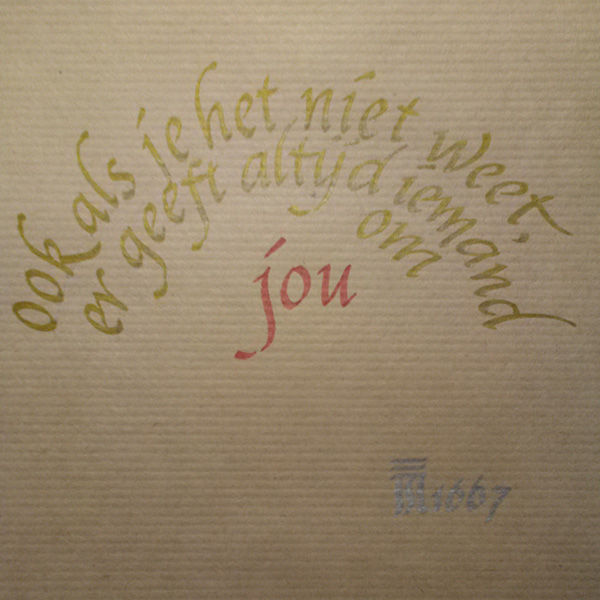 ook als je het niet weet,
er geeft altijd iemand
om
jou
1667